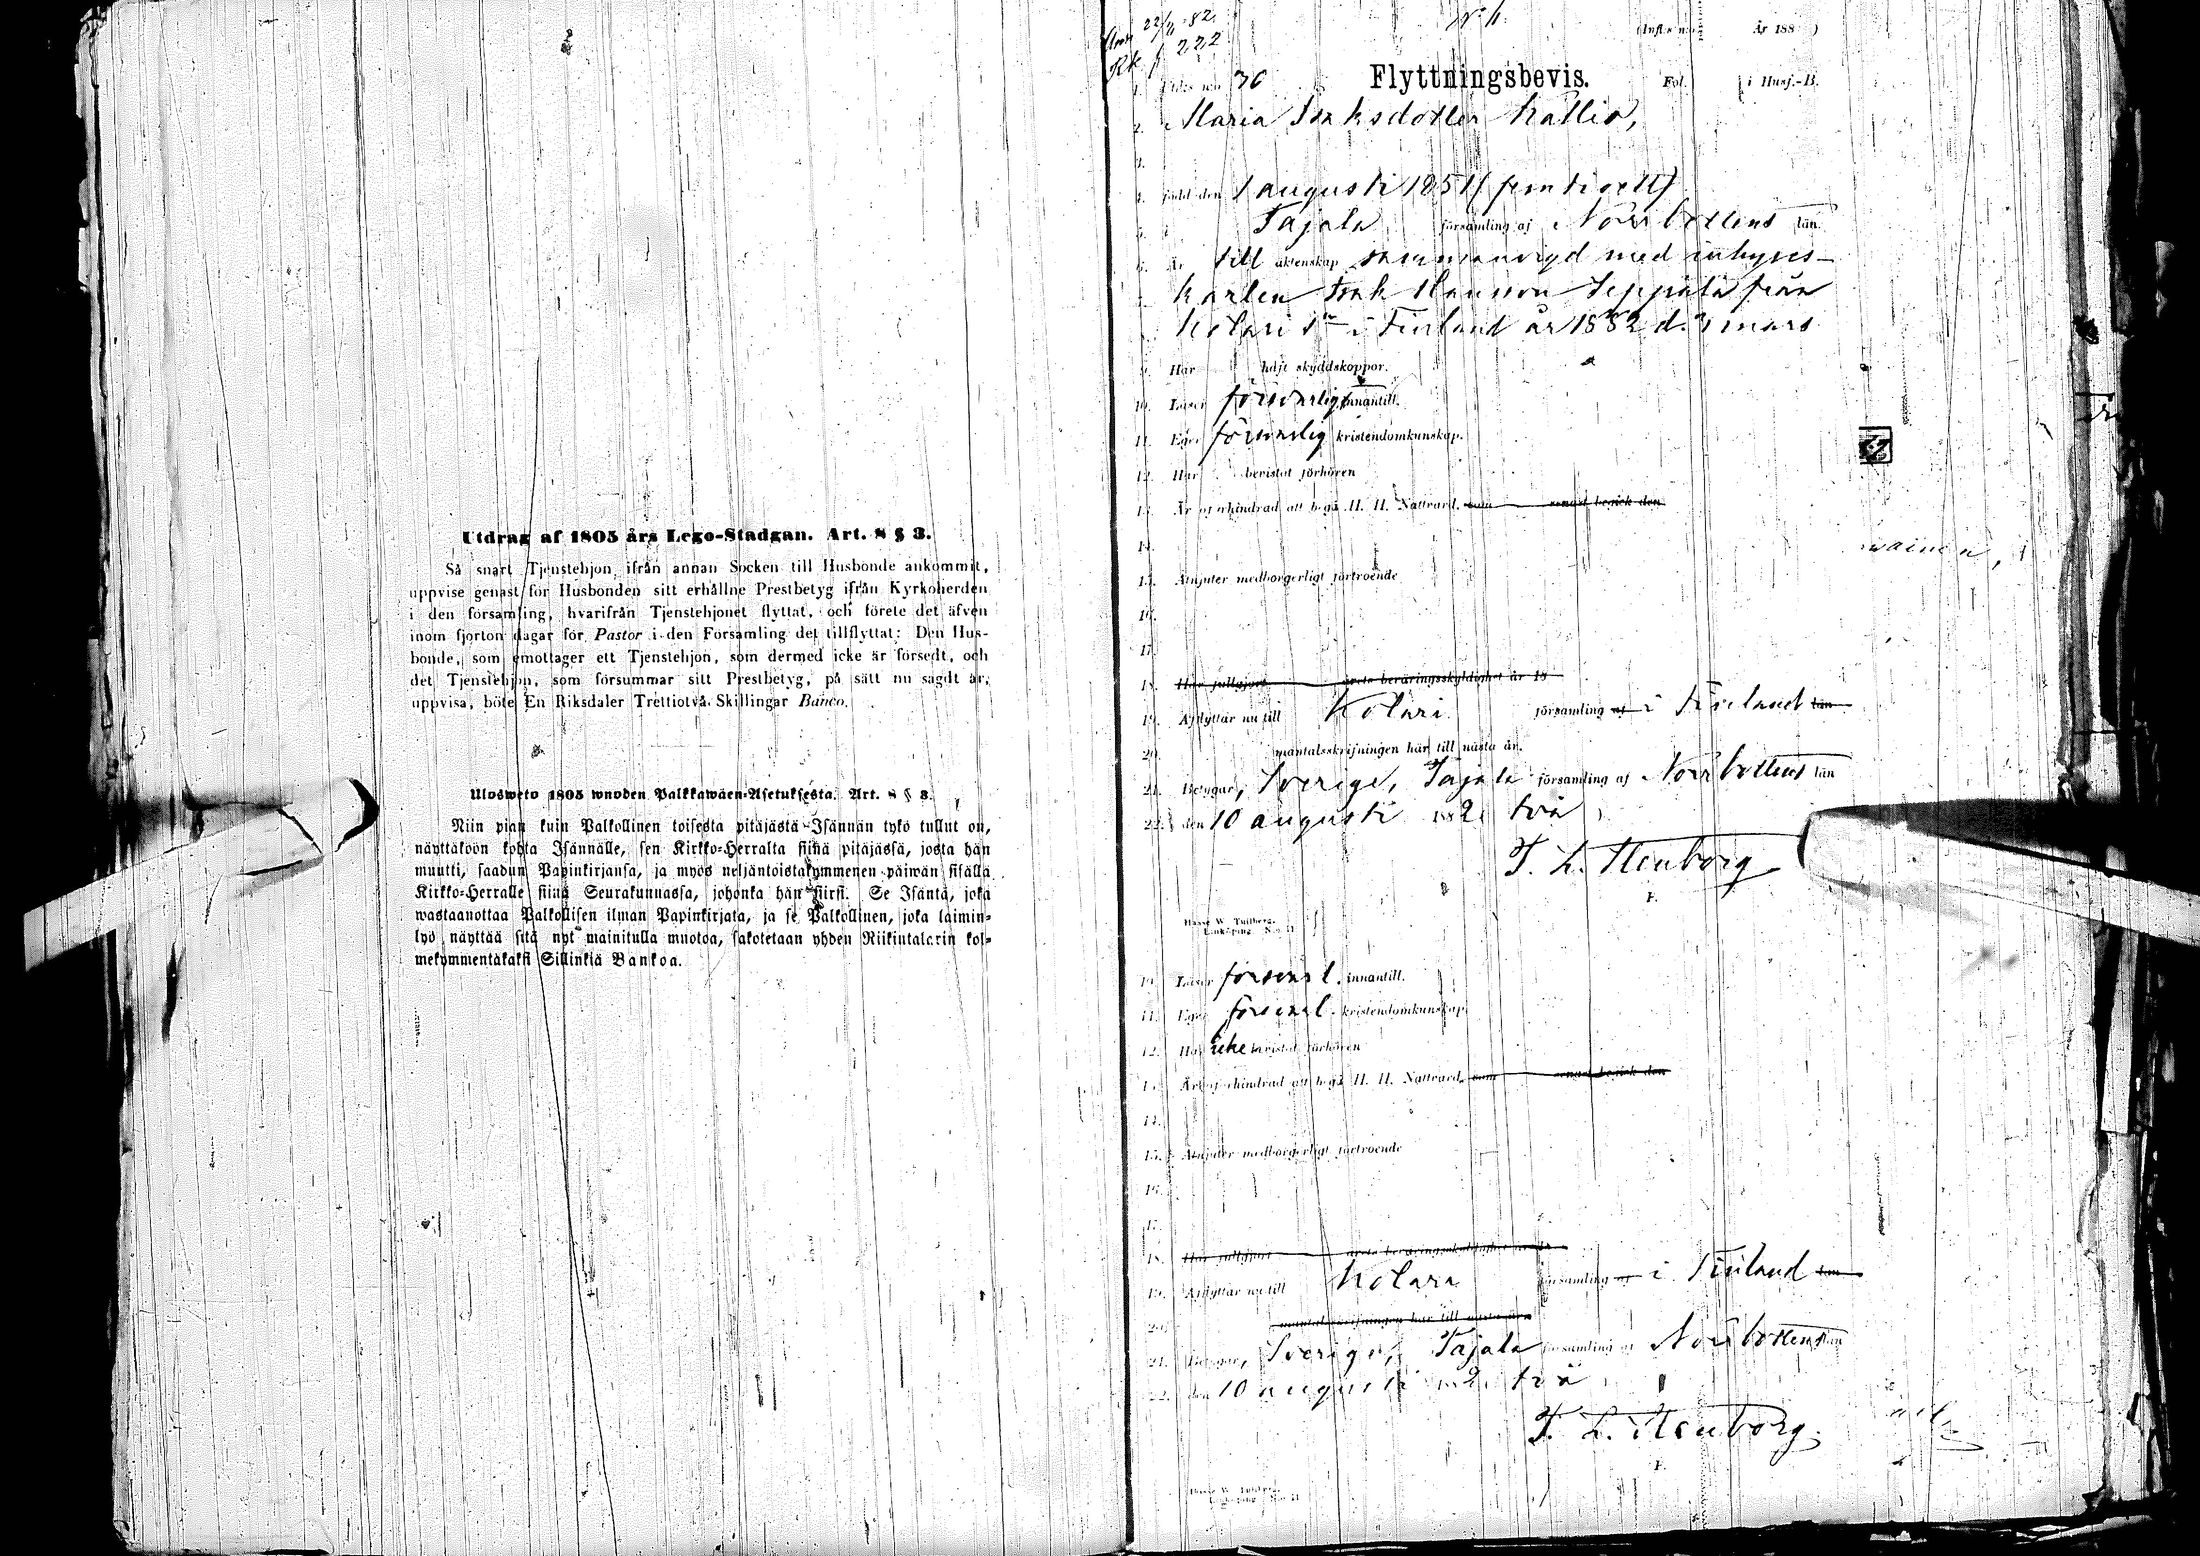 Utdrag af 1805 års Lego-Stadgan. Art. 8 § 3.
Så snart Tjenstehjon ifrån annan Socken till Husbonde ankommit,
uppvise genast för Husbonden sitt erhållne Prestbetyg ifrån Kyrkoherden
i den församling, hvarifrån Tjenstehjonet flyttat, och förete det äfven
inom fjorton dagar för Pastor i den Församling det tillflyttat: Den Hus-
bonde, som emottager ett Tjenstehjon, som dermed icke är försedt, och
det Tjenstehjon, som försummar sitt Prestbetyg, på sätt nu sagdt är,
uppvisa, böte En Riksdaler Trettiotvå Skillingar Banco.
Ulosweto 1805 wuoden Palkkawäen-Asetuksesta. Art. 8 § 3.
Niin pian kuin Palkollinen toisesta pitäjästä Isännän tykö tullut on,
näyttäköön kohta Isännälle, sen Kirkko-Herralta siinä pitäjässä, josta hän
muutti, saadun Papinkirjansa, ja myös neljäntoistakymmenen päiwän sisällä
Kirkko-Herralle siinä Seurakunnassa, johonka hän siirsi. Se Isäntä, joka
wastaanottaa Palkollisen ilman Papinkirjata, ja se Palkollinen, joka laimin-
lyö näyttää sitä nyt mainitulla muotoa, sakotetaan yhden Riikintalarin kol-
mekymmentäkaksi Sillinkiä Bankoa.
22/11 82
222
År 188 )
30 Flyttningsbevis. Fol. i Husj.-B.
2. Maria Isaksdotter Kallio,
4. född den 1 augusti 1851 (femtioett)
5. Tajala församling af Norrbottens län.
6. Är till äktenskap sammanvigd med inhyses-
karlen Isak Hansson Seppälä från
Kolari sn i Finland år 1882 d. 3 mars
9. Har haft skyddskoppor.
10. Läser försvarlig innantill.
11. Eger försvarlig kristendomkunskap.
12. Har bevistat förhören
13. Är oförhindrad att begå H. H. Nattvard, som senast begick den
14.
15. Åtnjuter medborgerligt förtroende
16.
17.
18. Har fullgjort årets beväringsskyldighet år 18
19. Afflyttar nu till Kolari församling af i Finland län
20. mantalsskrifningen här till nästa år.
21. Betygar, Sverige, Tajala församling af Norrbottens län
22. den 10 augusti 1882 två
F.
10. Läser försvarl. innantill.
11. Eger försvarl. kristendomkunskap
12. Har icke bevistat förhören
13. Är oförhindrad att begå H. H. Nattvard, som senast begick den
14.
15. Åtnjuter medborgerligt förtroende
16.
17.
18. Har fullgjort årets beväringsskyldighet
19. Afflyttar nu till Kolari församling af i Finland län
20. mantalsskrifningen här till nästa år
21. Betygar, Sverige, Tajala församling af Norrbottens län
22. den 10 augusti 1882 två
F.